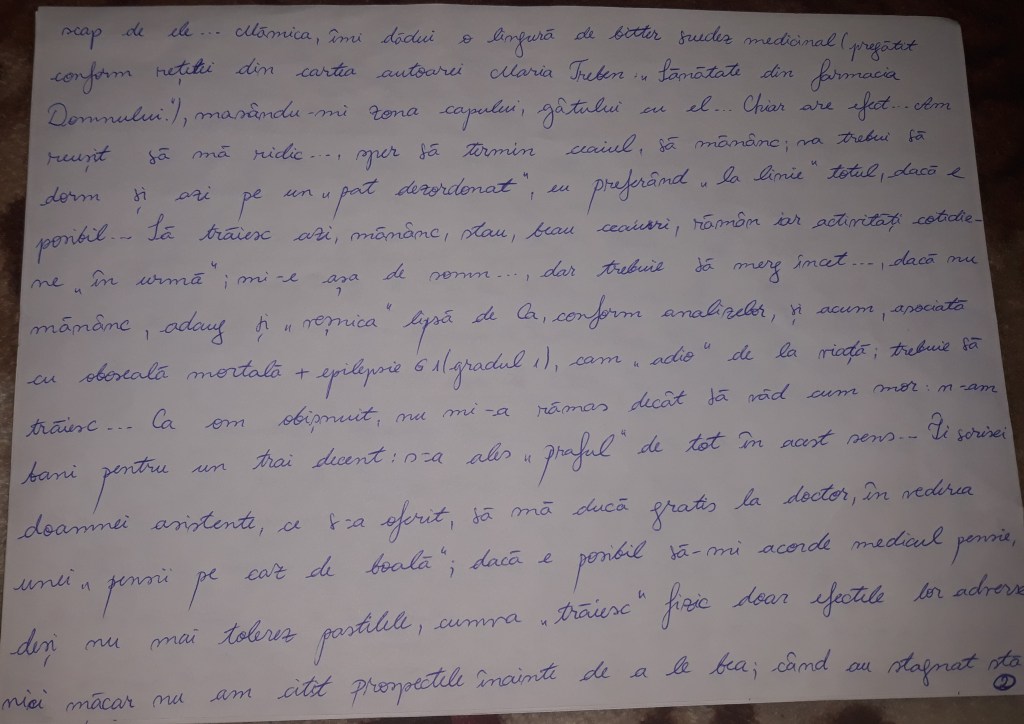 scap de ele... Mămica, îmi dădui o lingură de bitter suedez medicinal (pregătit
conform rețetei din cartea autoarei Maria Treben: „Sănătate din farmacia
Domnului."), masându-mi zona capului, gâtului cu el... Chiar are efect... Am
reușit să mă ridic..., sper să termin ceaiul, să mănânc; va trebui să
dorm și azi pe un „pat dezordonat", eu preferând „la linie" totul, dacă e
posibil... Să trăiesc azi, mănânc, stau, beau ceaiuri, rămân iar activități cotidie-
ne „în urmă"; mi-e așa de somn..., dar trebuie să merg încet..., dacă nu
mănânc, adaug și „veșnica" lipsă de Ca, conform analizelor, și acum, asociată
cu oboseală mortală + epilepsie G1 (gradul 1), cam „adio" de la viață; trebuie să
trăiesc... Ca om obișnuit, nu mi-a rămas decât să văd cum mor: n-am
bani pentru un trai decent: s-a ales „praful" de tot în acest sens... Îi scrisei
doamnei asistente, ce s-a oferit, să mă ducă gratis la doctor, în vederea
unei „pensii pe caz de boală"; dacă e posibil să-mi acorde medicul pensie,
deși nu mai tolerez pastilele, cumva „trăiesc" fizic doar efectele lor adverse
nici măcar nu am citit prospectele înainte de a le bea; când au stagnat sta
2